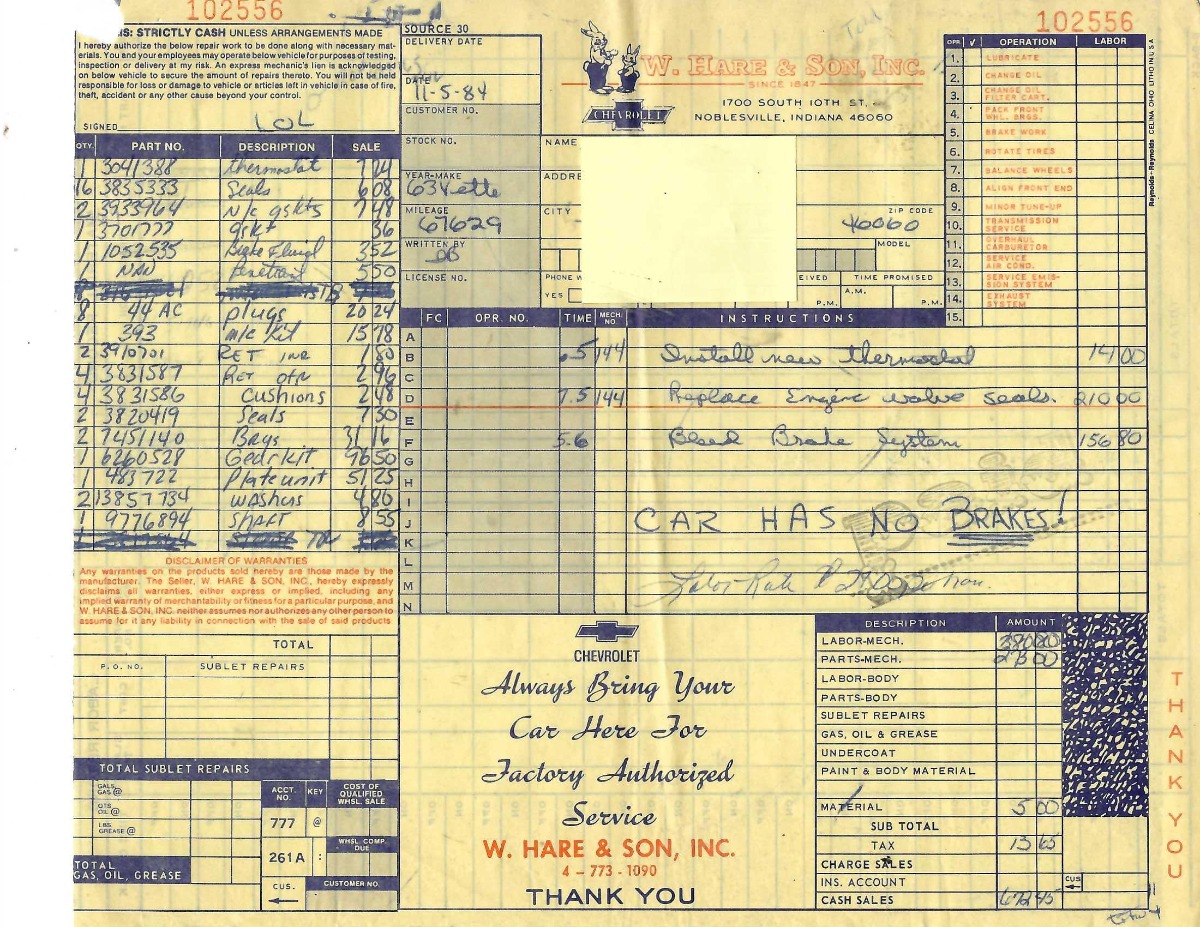 102556
102556
MS: STRICTLY CASH UNLESS ARRANGEMENTS MADE
I hereby authorize the below repair work to be done along with necessary mat-
erials. You and your employees may operate below vehicle for purposes of testing,
inspection or delivery at my risk. An express mechanic's lien is acknowledged
on below vehicle to secure the amount of repairs thereto. You will not be held
responsible for loss or damage to vehicle or articles left in vehicle in case of fire,
theft, accident or any other cause beyond your control.
SIGNED LOL
SOURCE 30
DELIVERY DATE
DATE
11-5-84
CUSTOMER NO.
STOCK NO.
YEAR-MAKE
63 Vette
MILEAGE
67629
WRITTEN BY
LICENSE NO.
W. HARE & SON, INC.
SINCE 1847
CHEVROLET
1700 SOUTH 10TH ST.
NOBLESVILLE, INDIANA 46060
NAME
ADDRE
CITY
ZIP CODE
46060
MODEL
PHONE W
YES
EIVED
TIME PROMISED
P.M.
A.M.
P.M.
OPR. ✓ OPERATION LABOR
1. LUBRICATE
2. CHANGE OIL
3. CHANGE OIL FILTER CART.
4. PACK FRONT WHL. BRGS.
5. BRAKE WORK
6. ROTATE TIRES
7. BALANCE WHEELS
8. ALIGN FRONT END
9. MINOR TUNE-UP
10. TRANSMISSION SERVICE
11. OVERHAUL CARBURETOR
12. SERVICE AIR COND.
13. SERVICE EMIS-SION SYSTEM
14. EXHAUST SYSTEM
15.
Reynolds + Reynolds CELINA OHIO LITHO IN U.S.A.
QTY. PART NO. DESCRIPTION SALE
1 3041388 thermostat
16 3835333 Seals 6 08
2 3933964 N/c gskts 7 48
1 3701777 gskt 36
1 1052535 Brake Fluid 3 52
1 NAN Penetrant 5 50
8 44 AC plugs 20 24
1 393 m/c kit 15 78
2 3910701 RET INR 1 80
4 3831587 RET OTR 2 96
4 3831586 Cushions 2 48
2 3820419 Seals 7 30
2 7451140 Brgs 31 16
1 6260528 Gear kit 76 50
1 483722 Plate unit 51 25
2 13857734 washers 4 80
1 9776894 SHAFT 8 55
FC OPR. NO. TIME MECH. NO. INSTRUCTIONS
A
B .5 144 Install new thermostat 14 00
C
D 7.5 144 Replace Engine valve seals. 210 00
E
F 5.6 Bleed Brake System 156 80
G
H
I
J CAR HAS NO BRAKES!
K
L
M Labor Rate
N
DISCLAIMER OF WARRANTIES
Any warranties on the products sold hereby are those made by the
manufacturer. The Seller, W. HARE & SON, INC., hereby expressly
disclaims all warranties, either express or implied, including any
implied warranty of merchantability or fitness for a particular purpose, and
W. HARE & SON, INC. neither assumes nor authorizes any other person to
assume for it any liability in connection with the sale of said products
TOTAL
P. O. NO. SUBLET REPAIRS
TOTAL SUBLET REPAIRS
GALS. GAS @
QTS. OIL @
LBS. GREASE @
TOTAL
GAS, OIL, GREASE
ACCT. NO. KEY COST OF QUALIFIED WHSL. SALE
777 @
WHSL COMP. DUE
261A :
CUS. CUSTOMER NO.
CHEVROLET
Always Bring Your
Car Here For
Factory Authorized
Service
W. HARE & SON, INC.
4 – 773 - 1090
THANK YOU
DESCRIPTION AMOUNT
LABOR-MECH. 380 80
PARTS-MECH.
LABOR-BODY
PARTS-BODY
SUBLET REPAIRS
GAS, OIL & GREASE
UNDERCOAT
PAINT & BODY MATERIAL
MATERIAL 5 00
SUB TOTAL
TAX 13 65
CHARGE SALES
INS. ACCOUNT
CUS
CASH SALES 672 45
THANK YOU